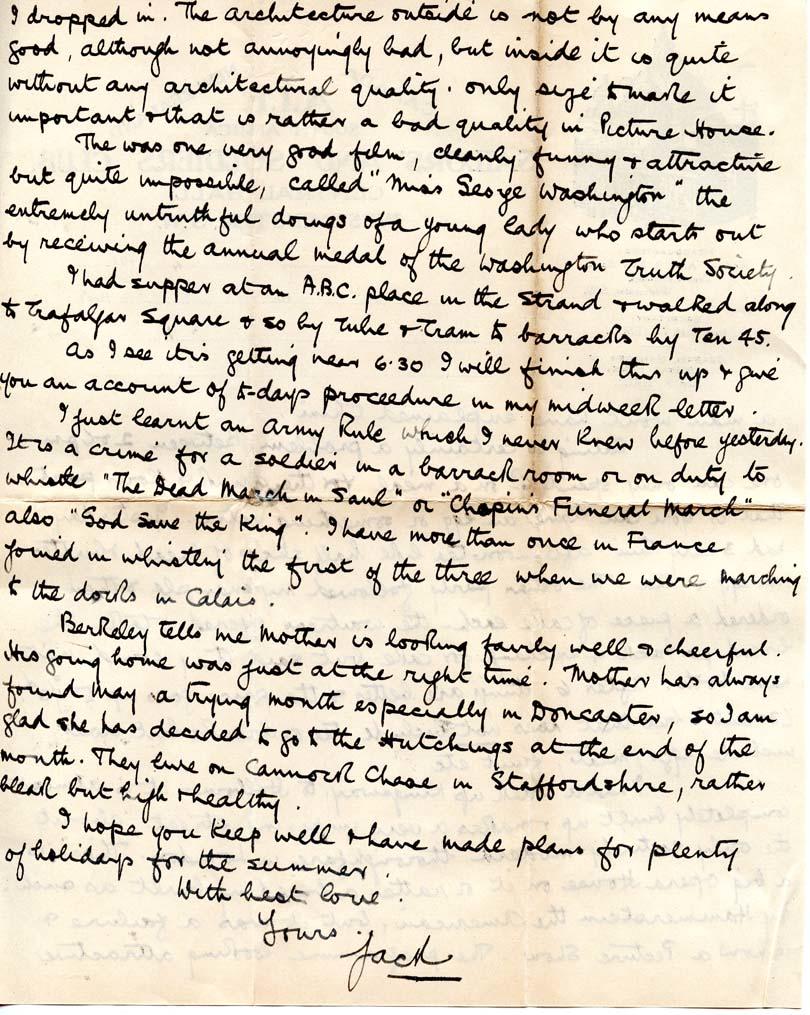 I dropped in. The architecture outside is not by any means
good, although not annoyingly bad, but inside it is quite
without any architectural quality. only size to make it
important & that is rather a bad quality in Picture House.
The was one very good film, cleanly funny & attractive
but quite impossible, called "Miss George Washington" the
extremely untruthful doings of a young lady who starts out
by receiving the annual medal of the Washington Truth Society.
I had supper at an A.B.C. place in the Strand & walked along
to Trafalgar Square & so by Tube & Tram to barracks by Ten 45.
As I see it is getting near 6.30 I will finish this up & give
you an account of to-days proceedure in my midweek letter.
I just learnt an Army Rule which I never knew before yesterday.
It is a crime for a soldier in a barrack room or on duty to
whistle "The Dead March in Saul" or "Chopin's Funeral March"
also "God Save the King". I have more than once in France
joined in whistling the first of the three when we were marching
to the docks in Calais.
Berkeley tells me Mother is looking fairly well & cheerful.
His going home was just at the right time. Mother has always
found May a trying month especially in Doncaster, so I am
glad she has decided to go to the Hutchings at the end of the
month. They live on Cannock Chase in Staffordshire, rather
bleak but high & healthy.
I hope you keep well & have made plans for plenty
of holidays for the summer.
With best love.
Yours
Jack